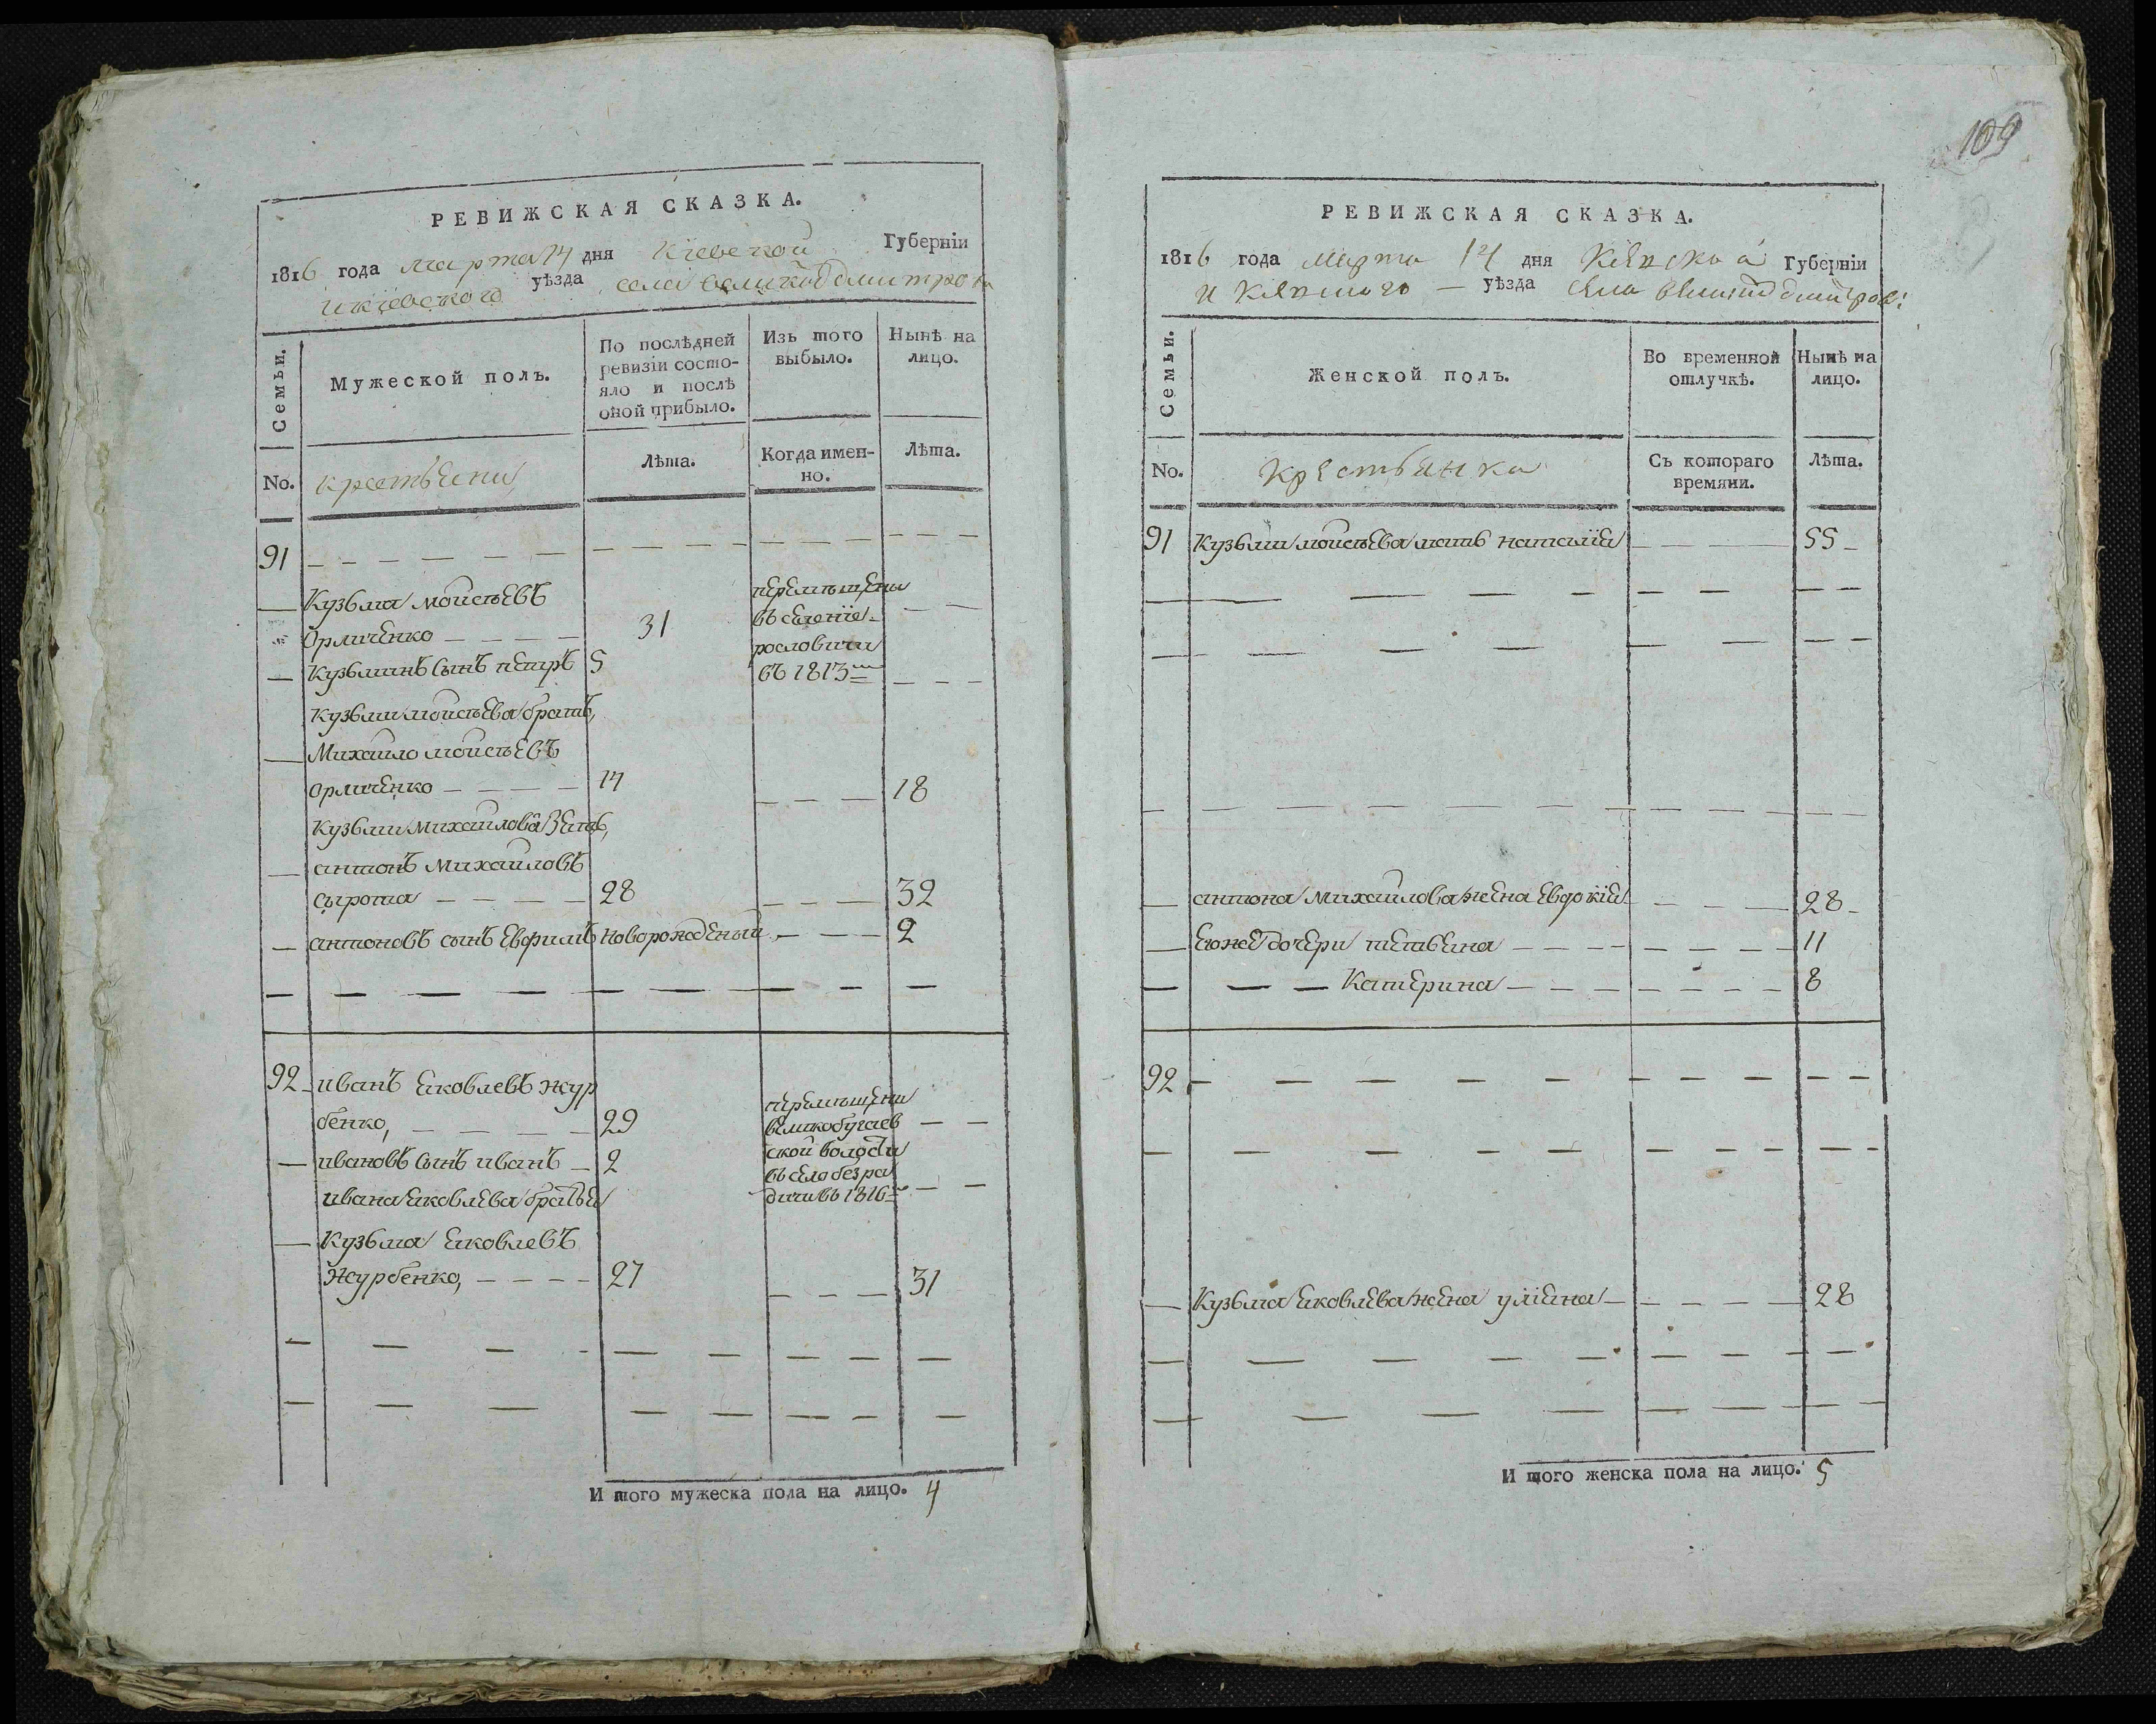 РЕВИЖСКАЯ СКАЗКА.
1816 года марта 14 дня Кіевской Губерніи
и кіевского уѣзда села великой дмитров
Семьи. Мужеской полъ. По послѣдней ревизіи состояло и послѣ оной прибыло. Изъ того выбыло. Нынѣ на лицо.
No. крестьяни Лѣта. Когда именно. Лѣта.
91
Кузьма мойсѣевъ перемѣщены
Орличенко 31 въ селеніе
Кузьминъ сынъ петръ 5 рословичи
въ 1813
Кузьми мойсѣева братъ,
Михайло мойсѣевъ
орличенко 14 18
Кузьми михайлова зять,
антонъ михайловъ
сырота 28 32
антоновъ сынъ Евфимъ новорожденый 2
92 иванъ яковлевъ жур
бенко, 29 перемѣщени
великобугаев
ивановъ сынъ иванъ 2 ской волости
въ село безра
ивана яковлева братья дичи въ 1816
Кузьма яковлевъ
Журбенко, 27 31
И того мужеска пола на лицо. 4
109
РЕВИЖСКАЯ СКАЗКА.
1816 года марта 14 дня Кіевской Губерніи
и Кіевского уѣзда села великой дмитров:
Семьи. Женской полъ. Во временной отлучкѣ. Нынѣ на лицо.
No. Крестьянка Съ котораго времяни. Лѣта.
91 Кузьми мойсѣева мать наталія 55
антона михайлова жена Евдокія 28
Еюже дочери тетьяна 11
Катерина 8
92
Кузьма яковлева жена уліяна 28
И того женска пола на лицо. 5